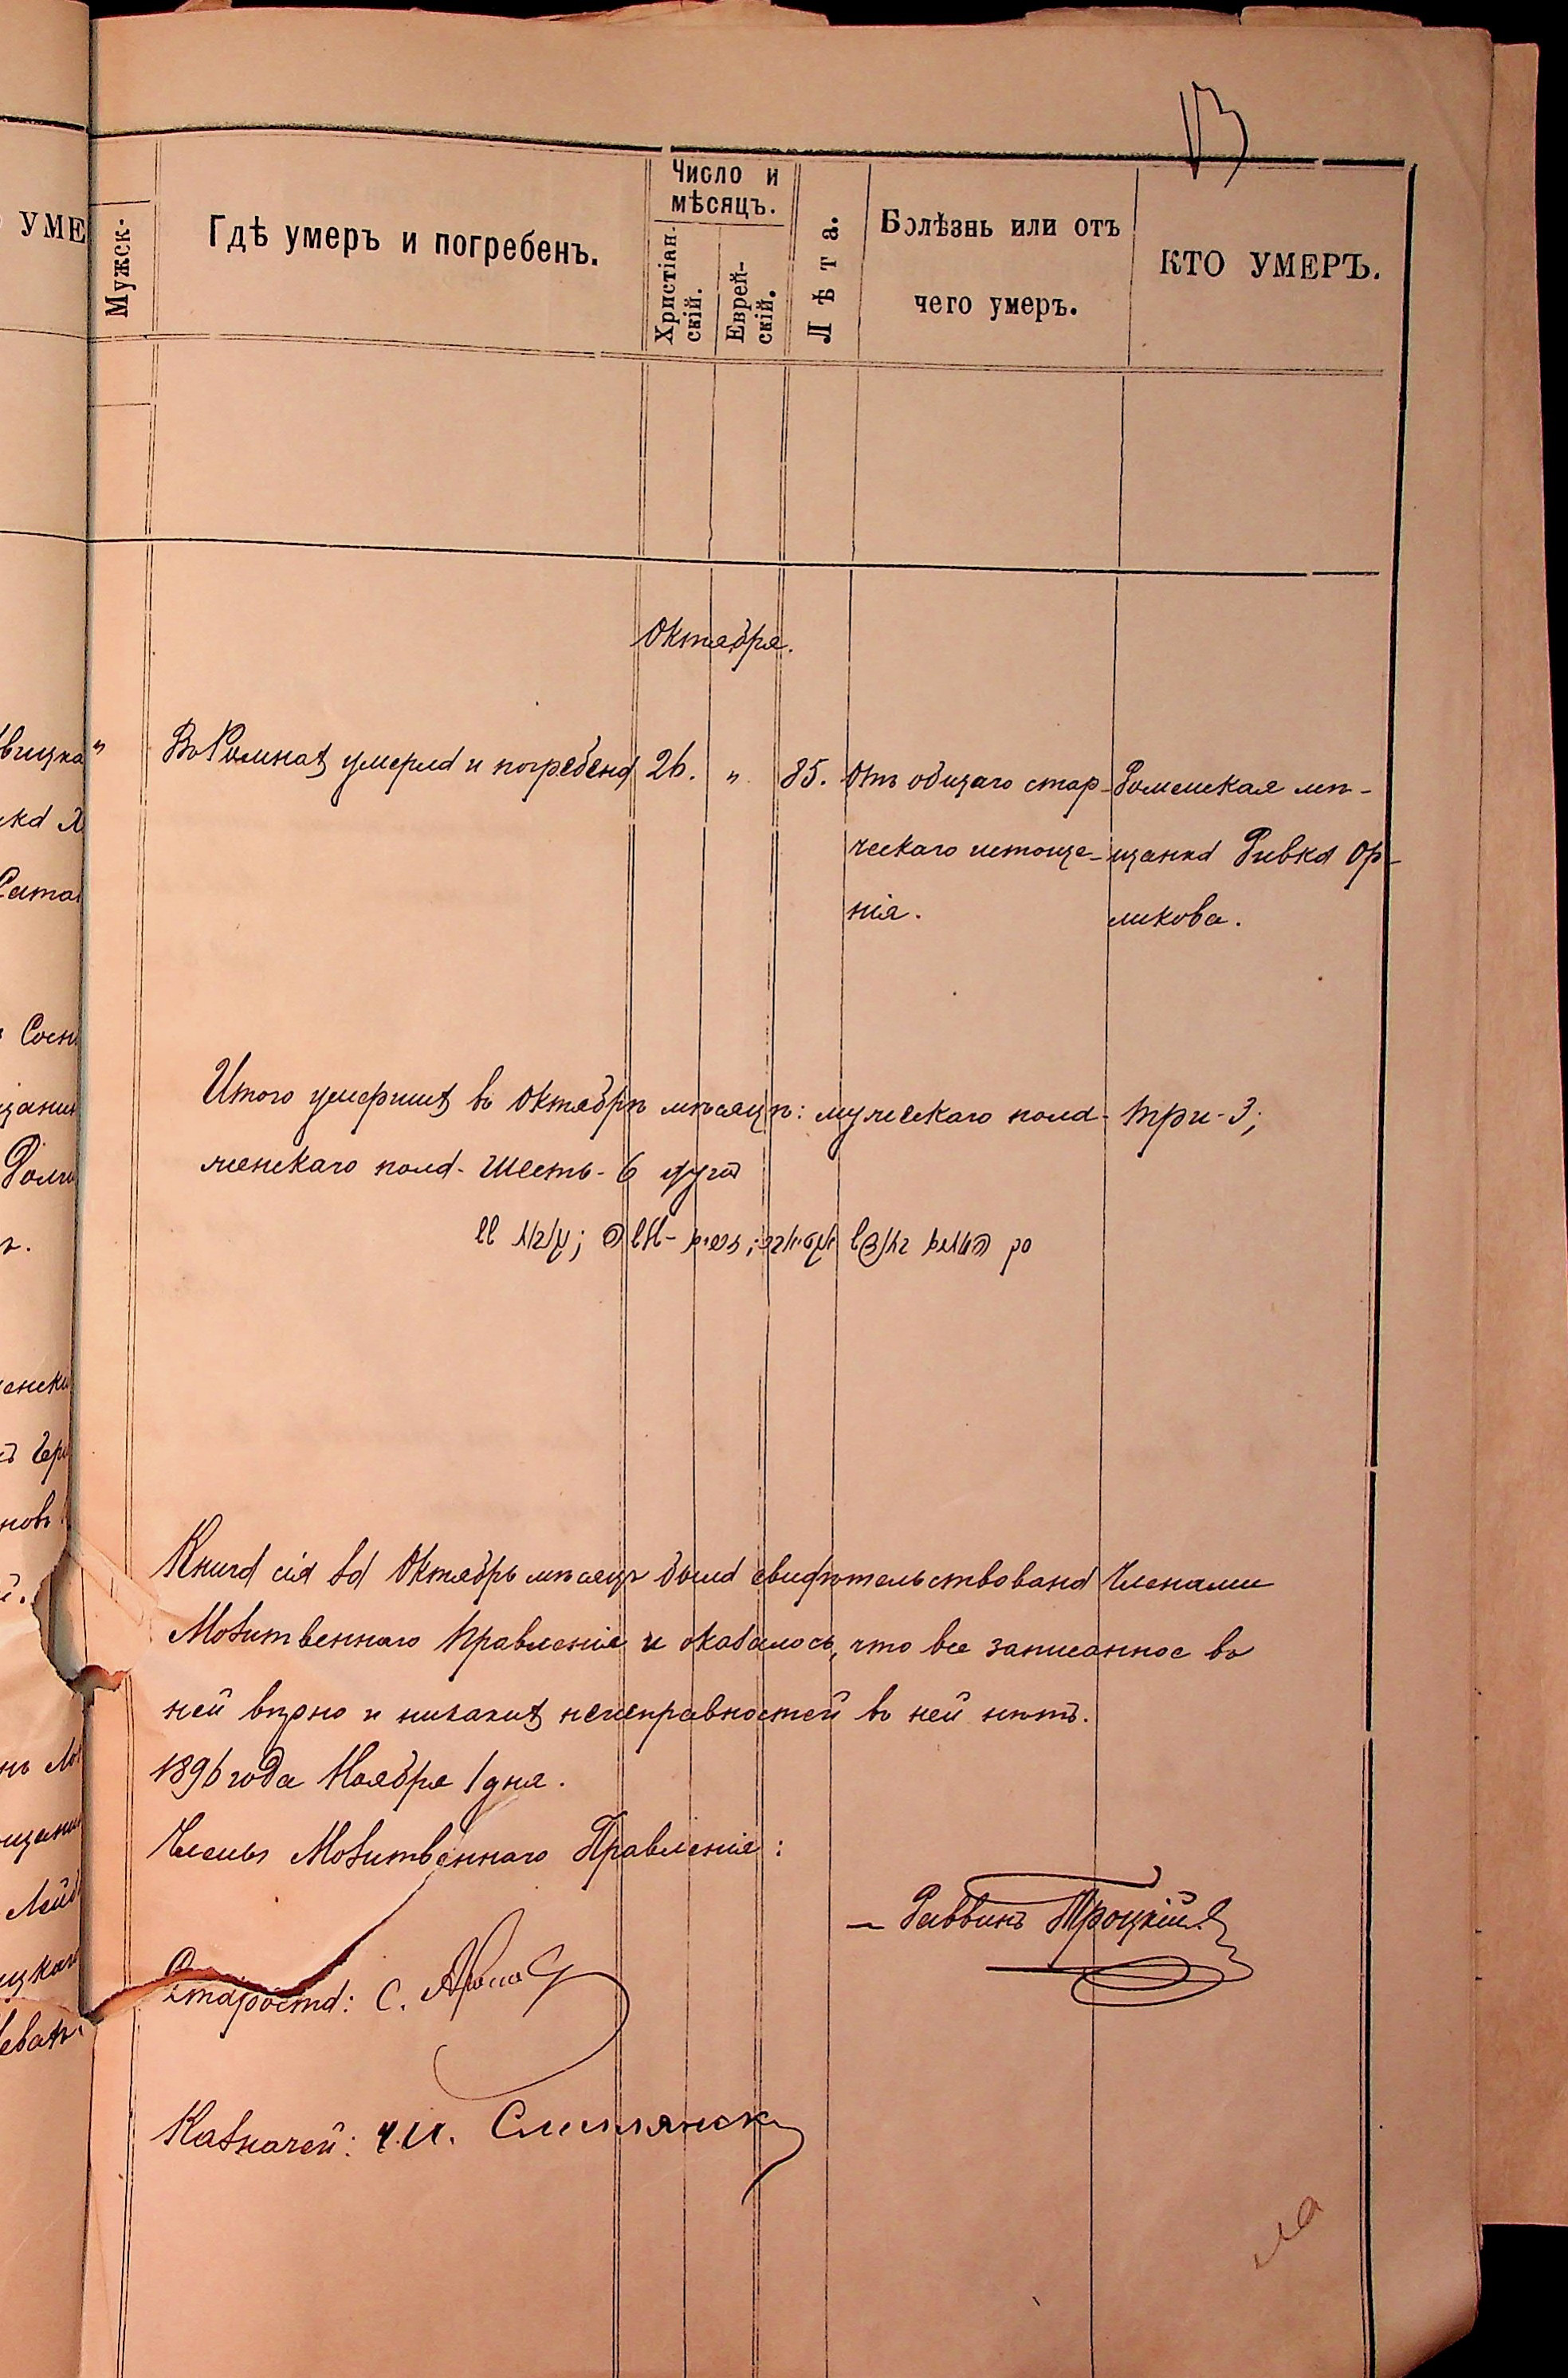 13
УМЕ
Мужск-
Гдѣ умеръ и погребенъ.
Число и мѣсяцъ.
Христіан-скій.
Еврей-скій.
Лѣта.
Болѣзнь или отъ чего умеръ.
КТО УМЕРЪ.
Октября.
" Въ Ромнахъ умерла и погребена 26. " 85. Отъ общаго стар- Роменская мѣ-
ческаго истоще- щанка Ривка Ор-
нія. ликова.
Итого умершихъ въ Октябрѣ мѣсяцѣ: мужескаго пола - три - 3;
женскаго пола - шесть - 6 душъ
Книга сія за Октябрь мѣсяцъ была свидѣтельствована Членами
Молитвеннаго Правленія и оказалось, что все записанное въ
ней вѣрно и никакихъ неисправностей въ ней нѣтъ.
1896 года Ноября 1 дня.
Члены Молитвеннаго Правленія:
Раввинъ Троцкій
Староста: С.
Казначей: